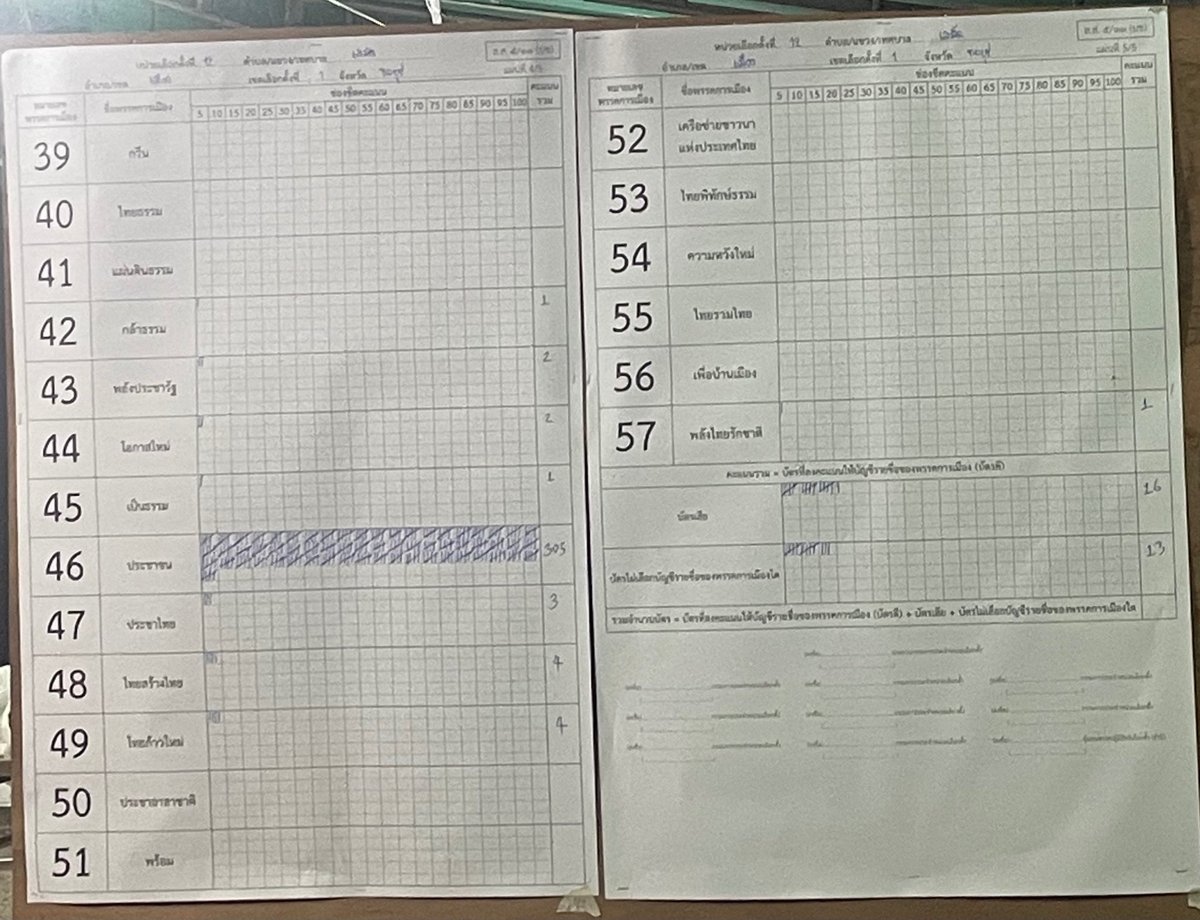 หน่วยเลือกตั้งที่ 12 ตำบล/แขวง/เทศบาล เสม็ด
อำเภอ/เขต เมือง เขตเลือกตั้งที่ 1 จังหวัด ชลบุรี แผ่นที่ 4/5
หมายเลขพรรคการเมือง ชื่อพรรคการเมือง ช่องขีดคะแนน คะแนนรวม
5 10 15 20 25 30 35 40 45 50 55 60 65 70 75 80 85 90 95 100
39 กรีน
40 ไทยธรรม
41 แผ่นดินธรรม
42 กล้าธรรม 1
43 พลังประชารัฐ 2
44 โอกาสใหม่ 2
45 เป็นธรรม 1
46 ประชาชน 305
47 ประชาไทย 3
48 ไทยสร้างไทย 4
49 ไทยก้าวใหม่ 4
50 ประชาอาสาชาติ
51 พร้อม
หน่วยเลือกตั้งที่ 12 ตำบล/แขวง/เทศบาล เสม็ด
อำเภอ/เขต เมือง เขตเลือกตั้งที่ 1 จังหวัด ชลบุรี แผ่นที่ 5/5
หมายเลขพรรคการเมือง ชื่อพรรคการเมือง ช่องขีดคะแนน คะแนนรวม
5 10 15 20 25 30 35 40 45 50 55 60 65 70 75 80 85 90 95 100
52 เครือข่ายชาวนา
แห่งประเทศไทย
53 ไทยพิทักษ์ธรรม
54 ความหวังใหม่
55 ไทยรวมไทย
56 เพื่อบ้านเมือง
57 พลังไทยรักชาติ 1
คะแนนรวม = บัตรที่ลงคะแนนให้บัญชีรายชื่อของพรรคการเมือง (บัตรดี)
บัตรเสีย 16
บัตรไม่เลือกบัญชีรายชื่อของพรรคการเมืองใด 13
รวมจำนวนบัตร = บัตรที่ลงคะแนนให้บัญชีรายชื่อของพรรคการเมือง (บัตรดี) + บัตรเสีย + บัตรไม่เลือกบัญชีรายชื่อของพรรคการเมืองใด